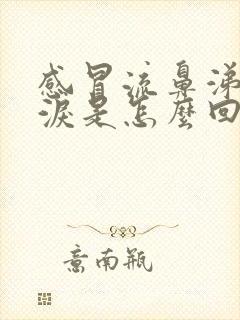 感冒流鼻涕
淚是怎麼回
意南瓶